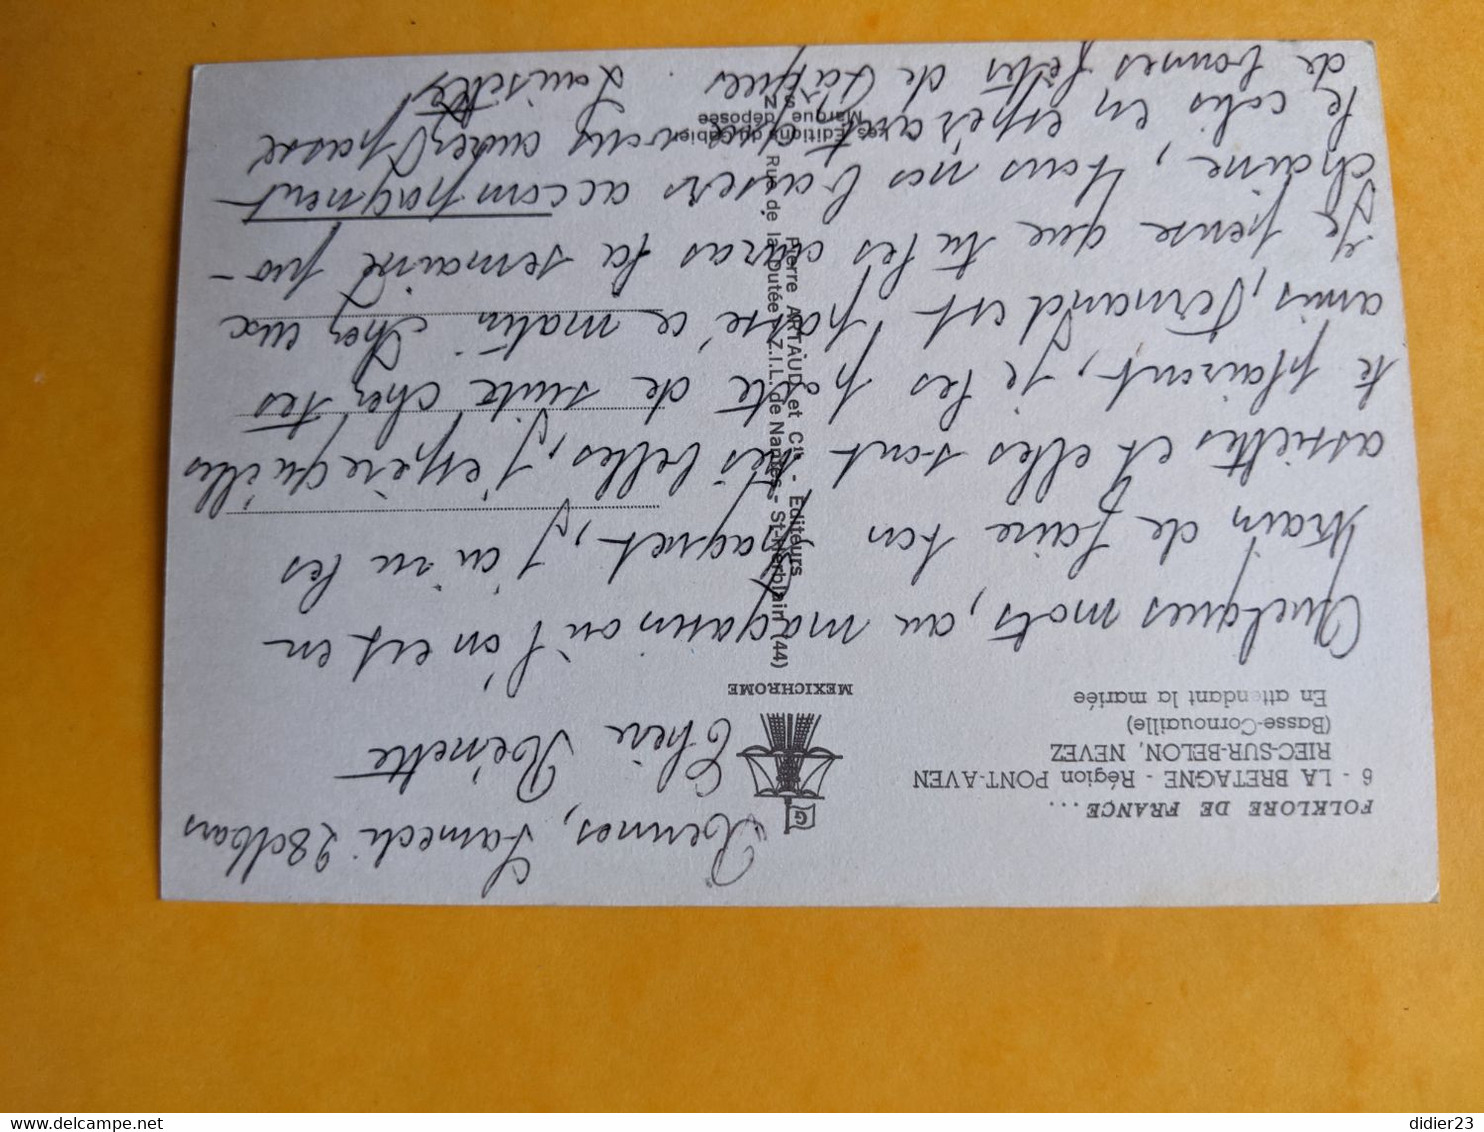 FOLKLORE DE FRANCE...
6 - LA BRETAGNE - Région PONT-AVEN
RIEC-SUR-BELON, NEVEZ
(Basse-Cornouaille)
En attendant la mariée
G
MEXICHROME
Rennes, Samedi 28 Mars
Chère Reinette
Quelques mots, au magasin où l'on est en
train de faire ton paquet, j'ai vu les
assiettes et elles sont très belles, j'espère qu'elles
te plairont, je les poste de suite chez tes
amis, Fernand est passé ce matin chez eux
Je pense que tu les auras la semaine pro-
chaine, tous nos baisers accompagnent
le colis en espérant que vous aurez passé
de bonnes fêtes de Pâques. Louisette
Pierre ARTAUD et Cie - Éditeurs
Rue de la Dutée - Z.I.L. de Nantes - St-Herblain (44)
Les Éditions du Gabier
Marque déposée
didier23